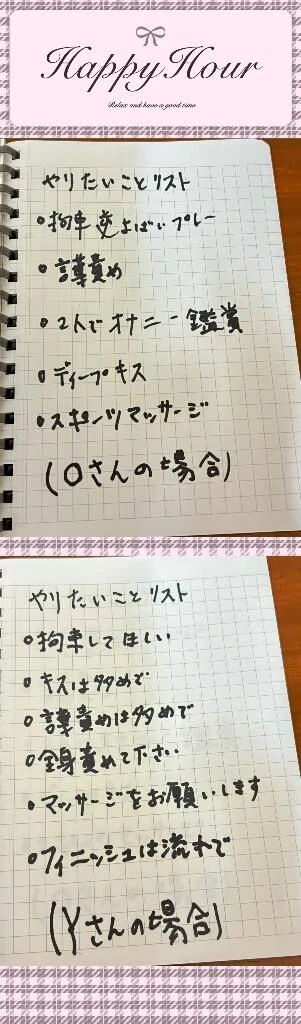 Happy Hour
Relax and have a good time
やりたいことリスト
•拘束 夜よばいプレー
•言葉責め
•2人でオナニー鑑賞
•ディープキス
•スポーツマッサージ
(Oさんの場合)
やりたいことリスト
•拘束してほしい
•キスは多めで
•言葉責めは多めで
•全身責めて下さい
•マッサージをお願いします
•フィニッシュは流れで
(Yさんの場合)